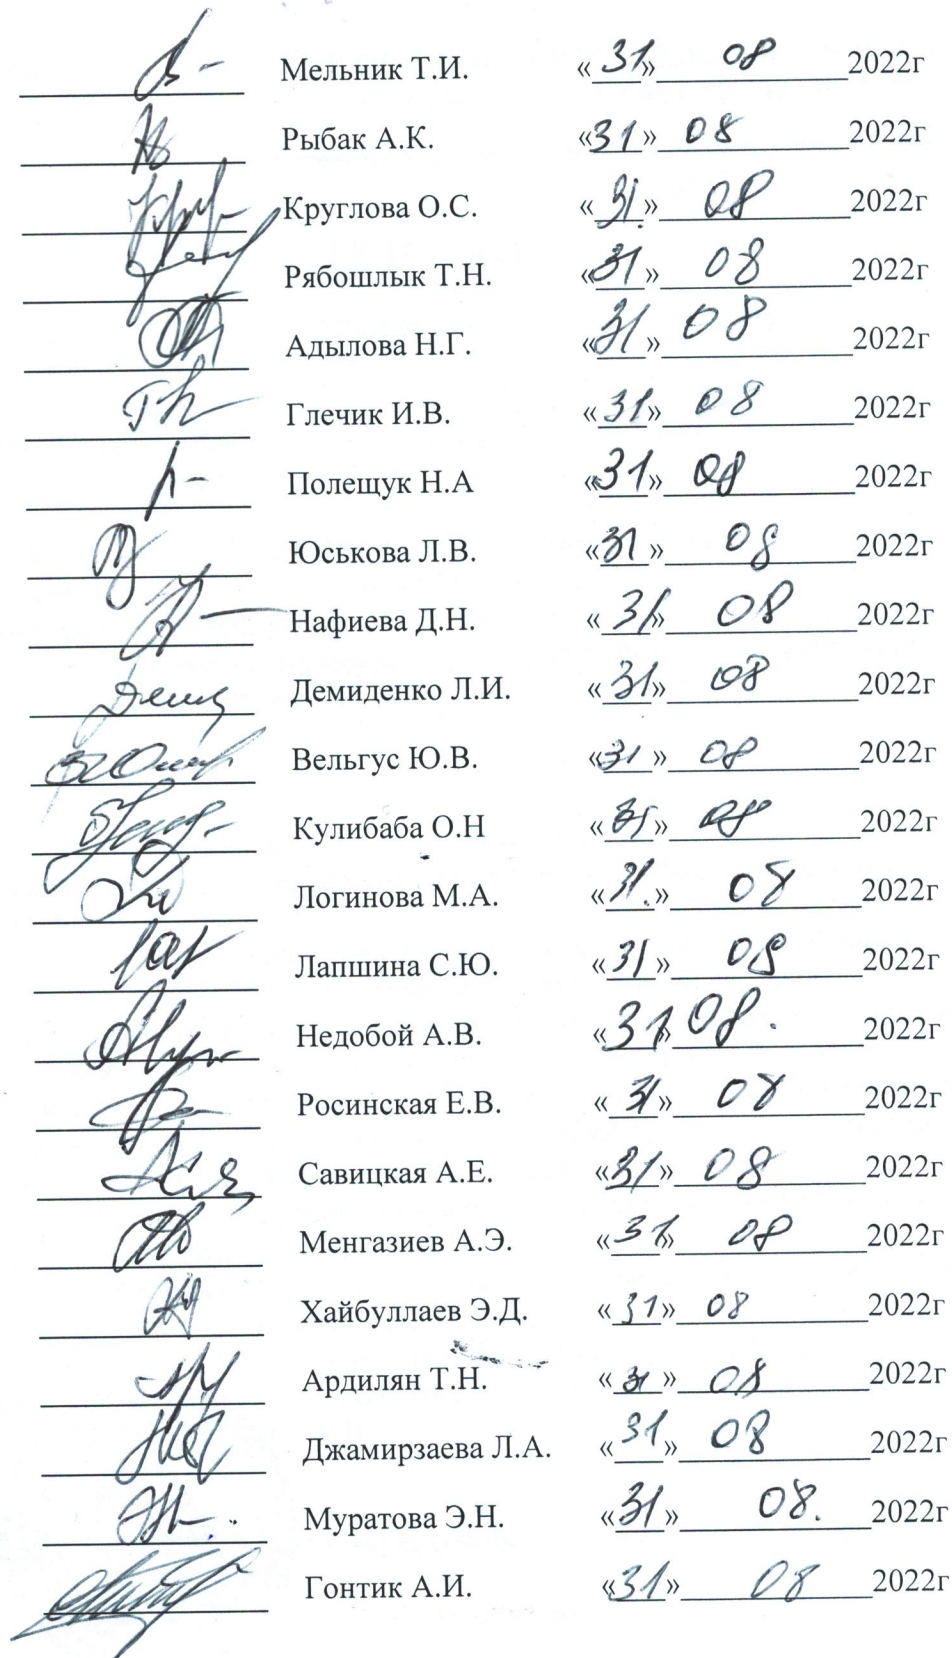 Мельник Т.И. «31» 08 2022г
Рыбак А.К. «31» 08 2022г
Круглова О.С. «31.» 08 2022г
Рябошлык Т.Н. «31» 08 2022г
Адылова Н.Г. «31» 08 2022г
Глечик И.В. «31» 08 2022г
Полещук Н.А «31» 08 2022г
Юськова Л.В. «31» 08 2022г
Нафиева Д.Н. «31» 08 2022г
Демиденко Л.И. «31» 08 2022г
Вельгус Ю.В. «31» 08 2022г
Кулибаба О.Н «31» 08 2022г
Логинова М.А. «31.» 08 2022г
Лапшина С.Ю. «31» 08 2022г
Недобой А.В. «31» 08. 2022г
Росинская Е.В. «31» 08 2022г
Савицкая А.Е. «31» 08 2022г
Менгазиев А.Э. «31» 08 2022г
Хайбуллаев Э.Д. «31» 08 2022г
Ардилян Т.Н. «31» 08 2022г
Джамирзаева Л.А. «31» 08 2022г
Муратова Э.Н. «31» 08. 2022г
Гонтик А.И. «31» 08 2022г